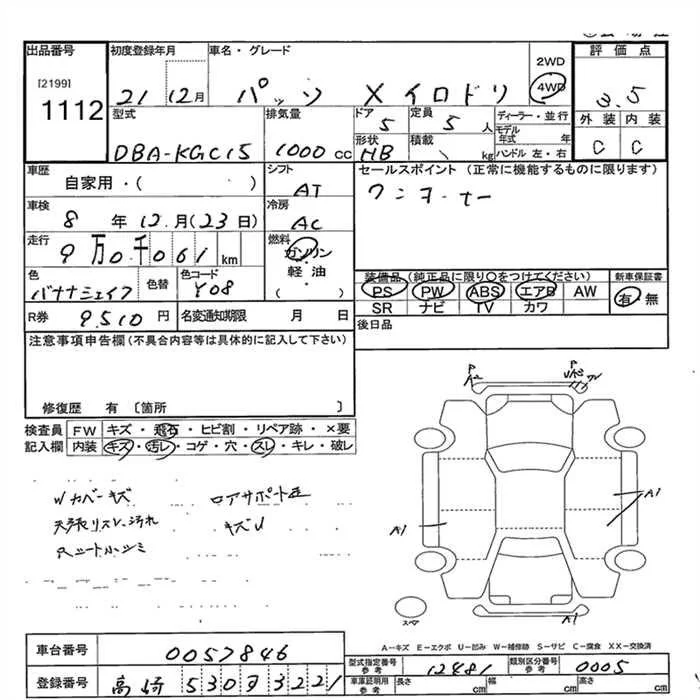 出品番号
[2199]
1112
初度登録年月
21 12月
車名・グレード
パッソ X イロドリ
2WD
4WD
評価点
3.5
外装 内装
C C
型式
DBA-KGC15
排気量
1000 cc
ドア
5
形状
HB
定員
5 人
積載
kg
ディーラー・並行
モデル年式 年
ハンドル 左・右
車歴
自家用・( )
シフト
AT
車検
8 年 12月(23日)
冷房
AC
走行
9万0千061 km
燃料
ガソリン・軽油
( )
色
色替
色コード
Y08
R券
9510円
名変通知期限 月 日
セールスポイント (正常に機能するものに限ります)
ワンオーナー
装備品 (純正品に限り○をつけてください)
PS PW ABS エアB AW
SR ナビ TV カワ
新車保証書
有・無
後日品
注意事項申告欄(不具合内容等は具体的に記入して下さい)
修復歴 有〔箇所 〕
検査員記入欄
FW キズ・飛石・ヒビ割・リペア跡・×要
内装 キズ・汚レ・コゲ・穴・スレ・キレ・破レ
Wカバーキズ
天張リスレ、汚れ
ロアサポート正
キズU
P
A2
P
A1
A1
A1
スペア
A-キズ E-エクボ U-凹み W-補修跡 S-サビ C-腐食 XX-交換済
車台番号
0057846
登録番号
高崎
型式指定番号
参考
12481
類別区分番号
参考
0005
車庫証明用
参考
長さ cm 幅 cm 高さ cm